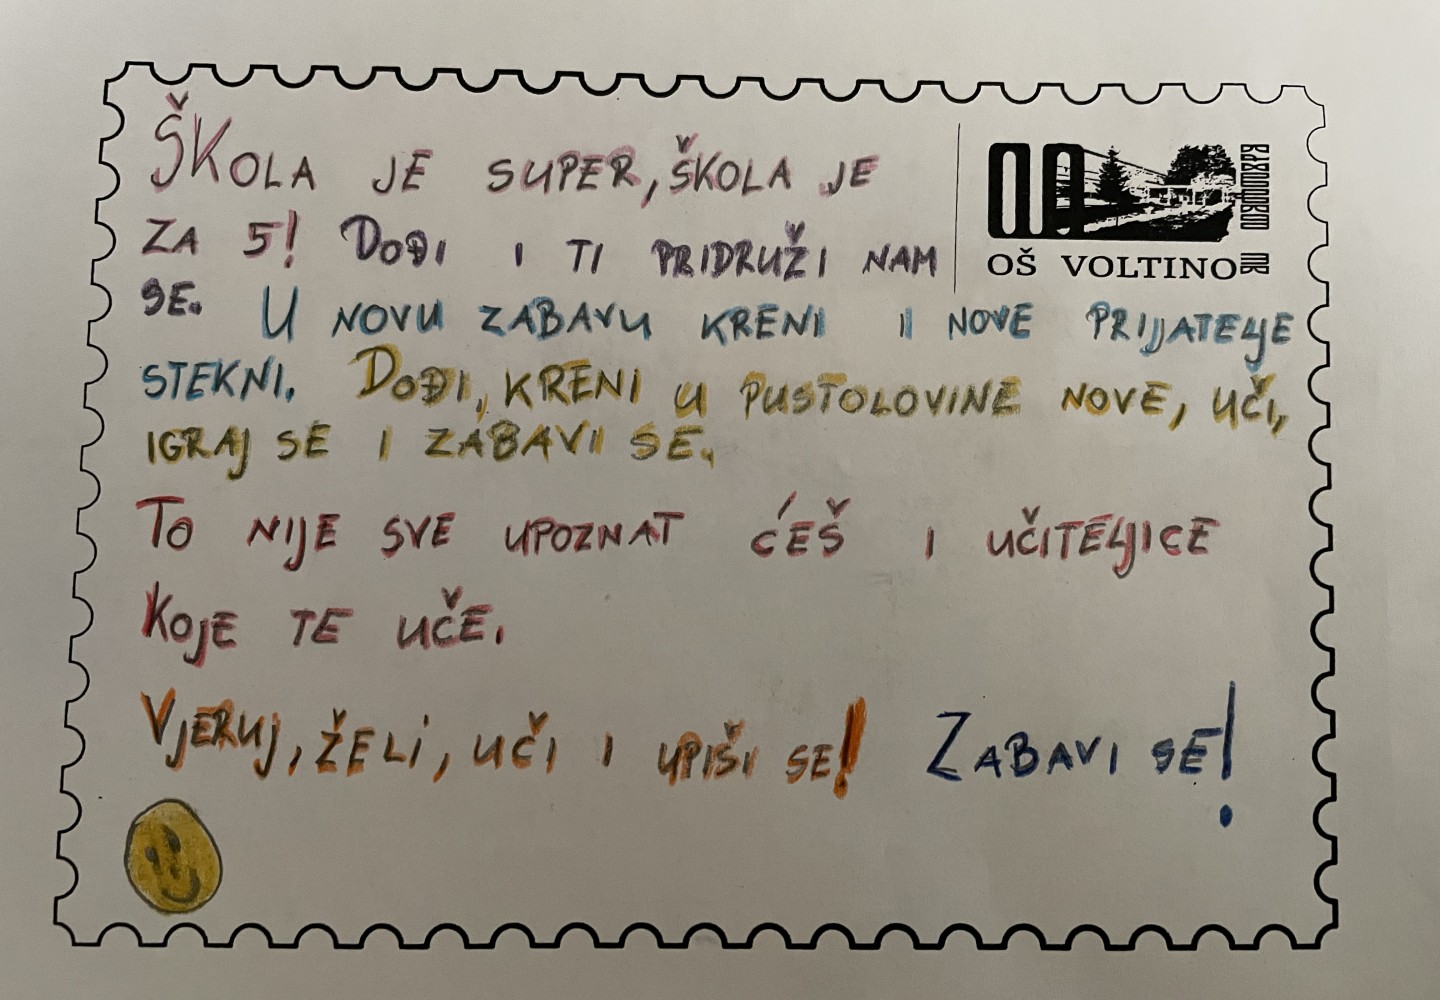 ŠKOLA JE SUPER, ŠKOLA JE
ZA 5! DOĐI I TI PRIDRUŽI NAM
SE. U NOVU ZABAVU KRENI I NOVE PRIJATELJE
STEKNI. DOĐI, KRENI U PUSTOLOVINE NOVE, UČI,
IGRAJ SE I ZABAVI SE.
TO NIJE SVE UPOZNAT ĆEŠ I UČITELJICE
KOJE TE UČE.
VJERUJ, ŽELi, UČI I UPIŠI SE! ZABAVI SE!
OŠ VOLTINO